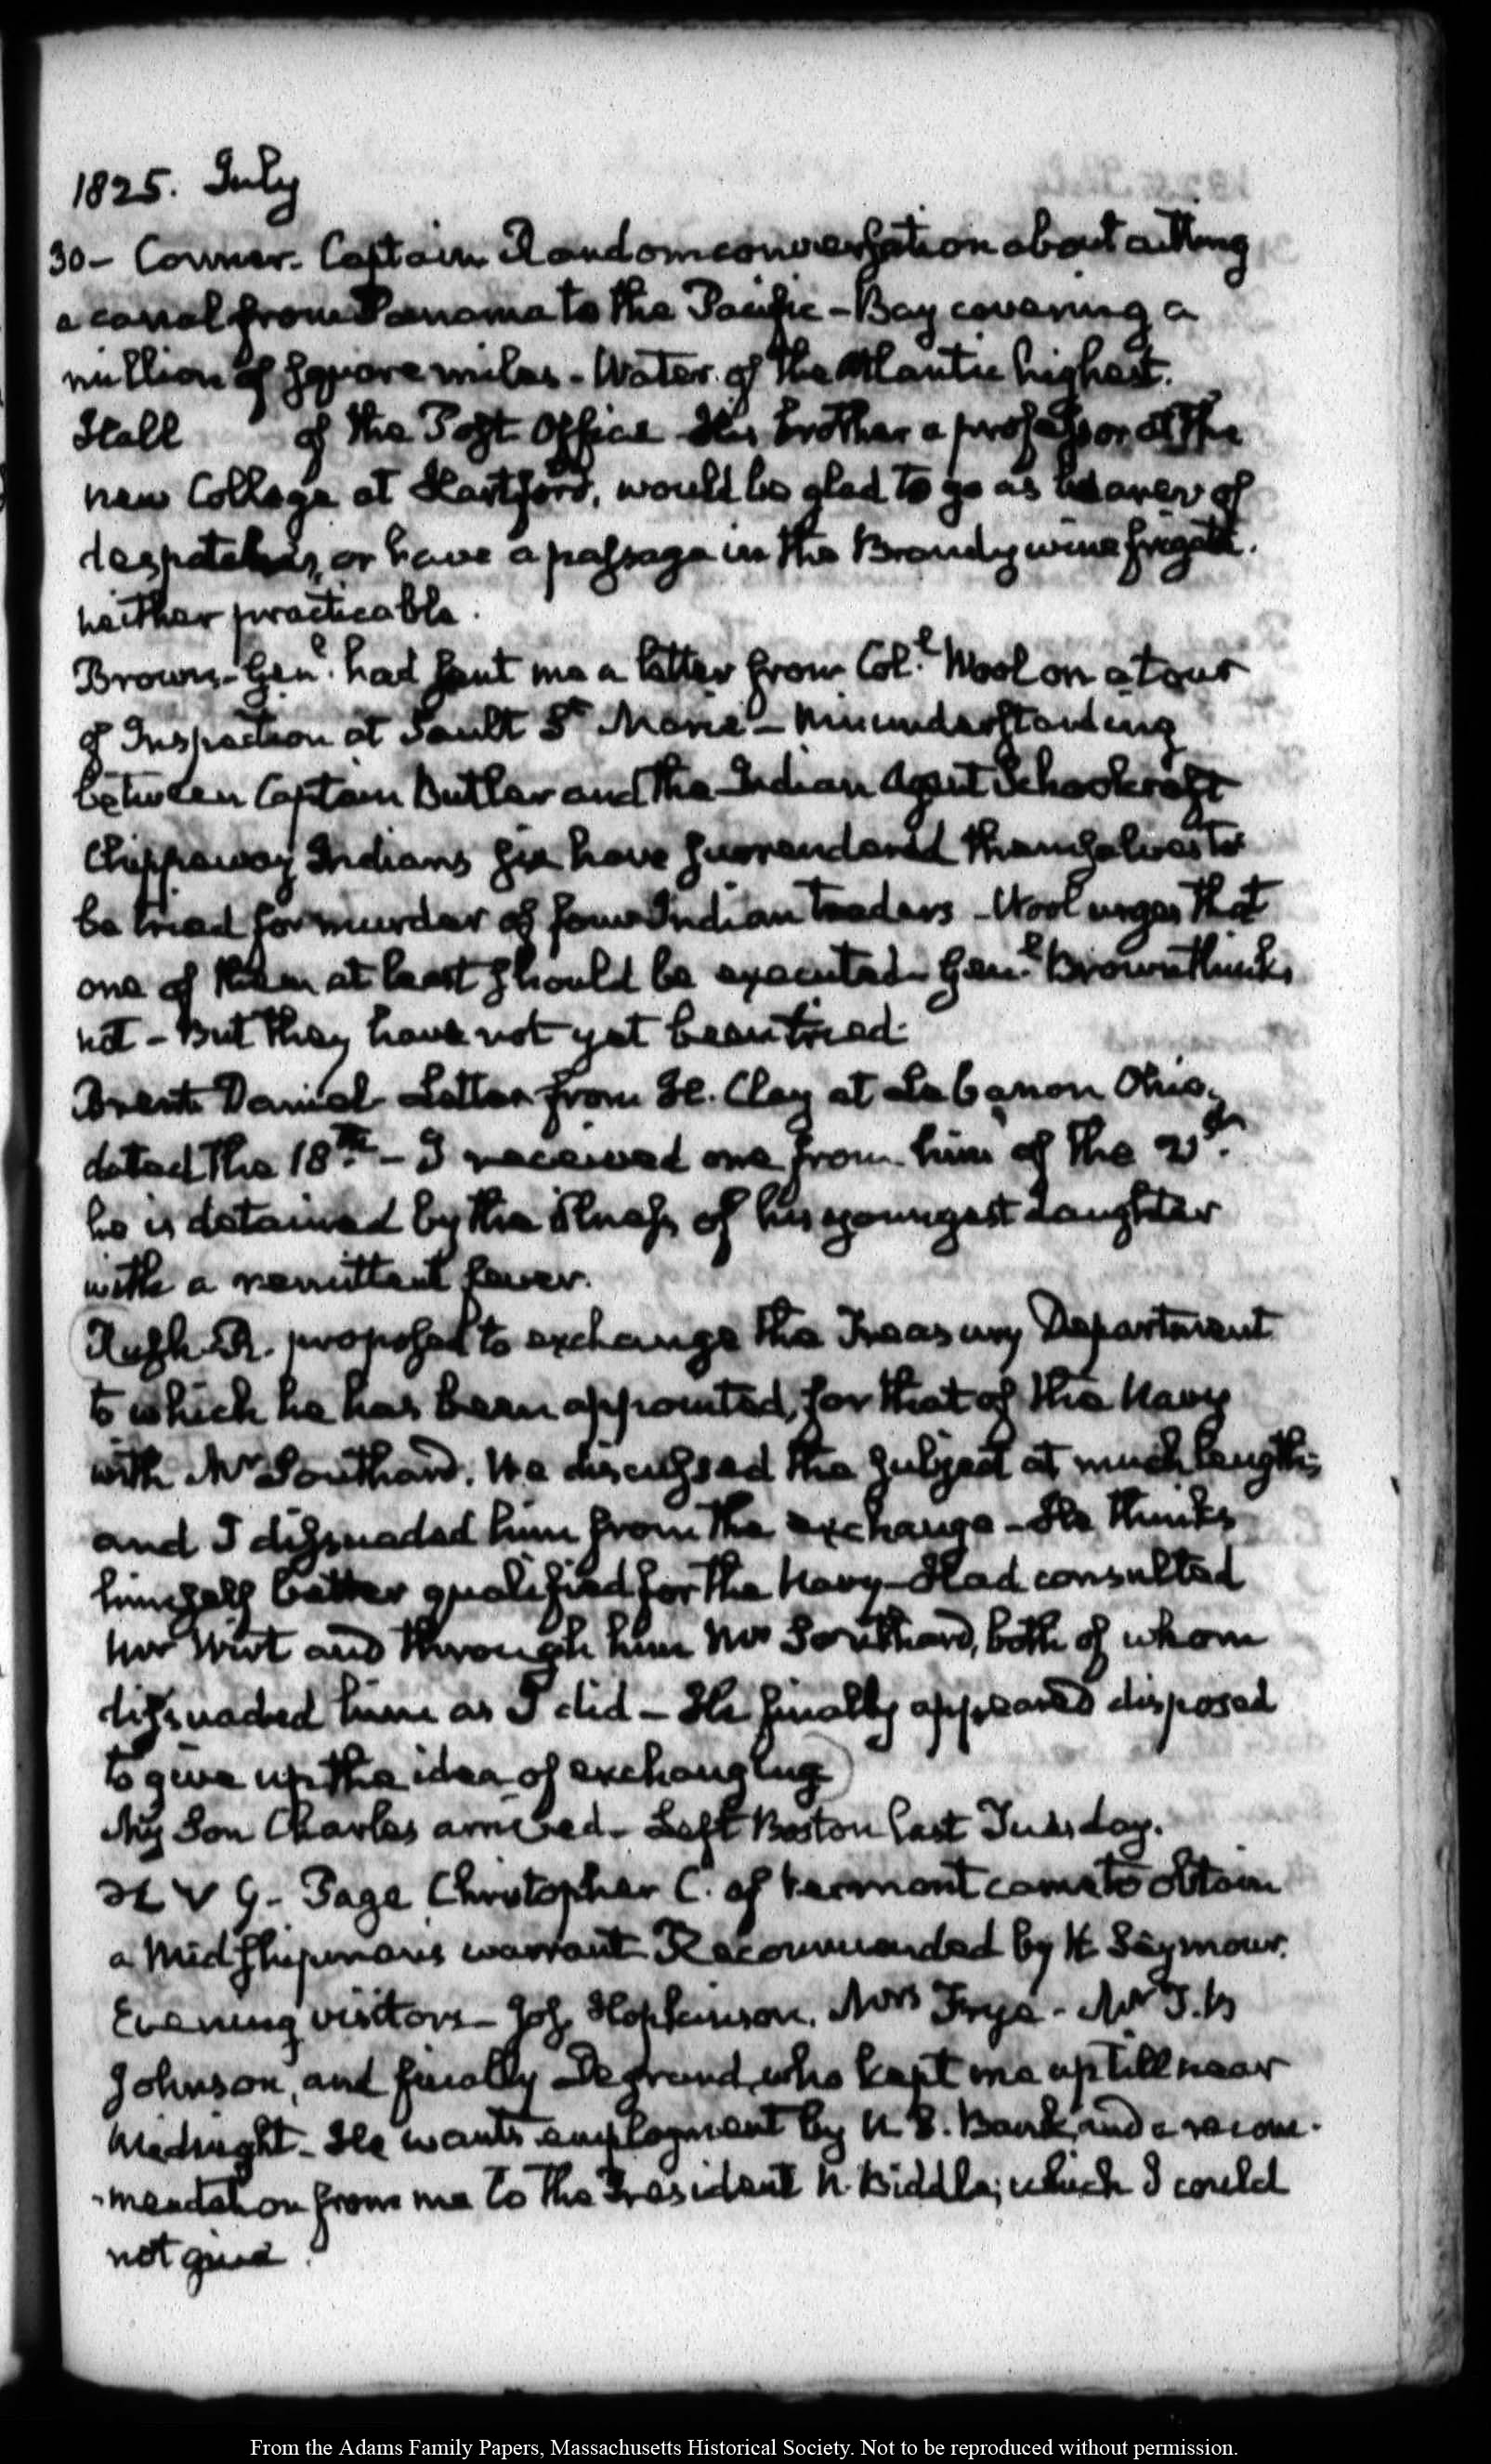 1825. July
30– Conner. Captain Random conversation about cutting
a canal from Panama to the Pacific – Bay covering a
million of square miles – Water of the Atlantic highest.
Hall of the Post Office His brother a professor at the
new College at Hartford, would be glad to go as bearer of
despatches, or have a passage in the Brandywine frigate.
neither practicable.
Brown– Genl. had sent me a letter from Coll. Wool on a tour
of Inspection at Sault St Marie – Misunderstanding
between Captain Butler and the Indian Agent Schoolcraft
Chippeway Indians six have surrendered themselves to
be tried for murder of four Indian traders – Wool urges that
one of them at least should be executed– Genl. Brown thinks
not – But they have not yet been tried.
Brent Daniel Letter from H. Clay at Lebanon Ohio,
dated the 18th. – I received one from him of the 21st.
he is detained by the illness of his youngest daughter
with a remittent fever.
Rush R. proposed to exchange the Treasury Department
to which he has been appointed, for that of the Navy
with Mr Southard. We discussed the subject at much length;
and I dissuaded him from the exchange – He thinks
himself better qualified for the Navy – Had consulted
Mr Wirt and through him Mr Southard, both of whom
dissuaded him as I did – He finally appeared disposed
to give up the idea of exchanging
My Son Charles arrived – Left Boston last Tuesday.
Page Christopher C. of Vermont came to obtain
a Midshipman's warrant Recommended by H Seymour.
Evening visitors – Jos. Hopkinson. Mrs Frye – Mr T. B
Johnson, and finally Degrand, who kept me up till near
Midnight – He wants employment by U.S. Bank, and a recom-
-mendation from me to the President N. Biddle; which I could
not give.
From the Adams Family Papers, Massachusetts Historical Society. Not to be reproduced without permission.